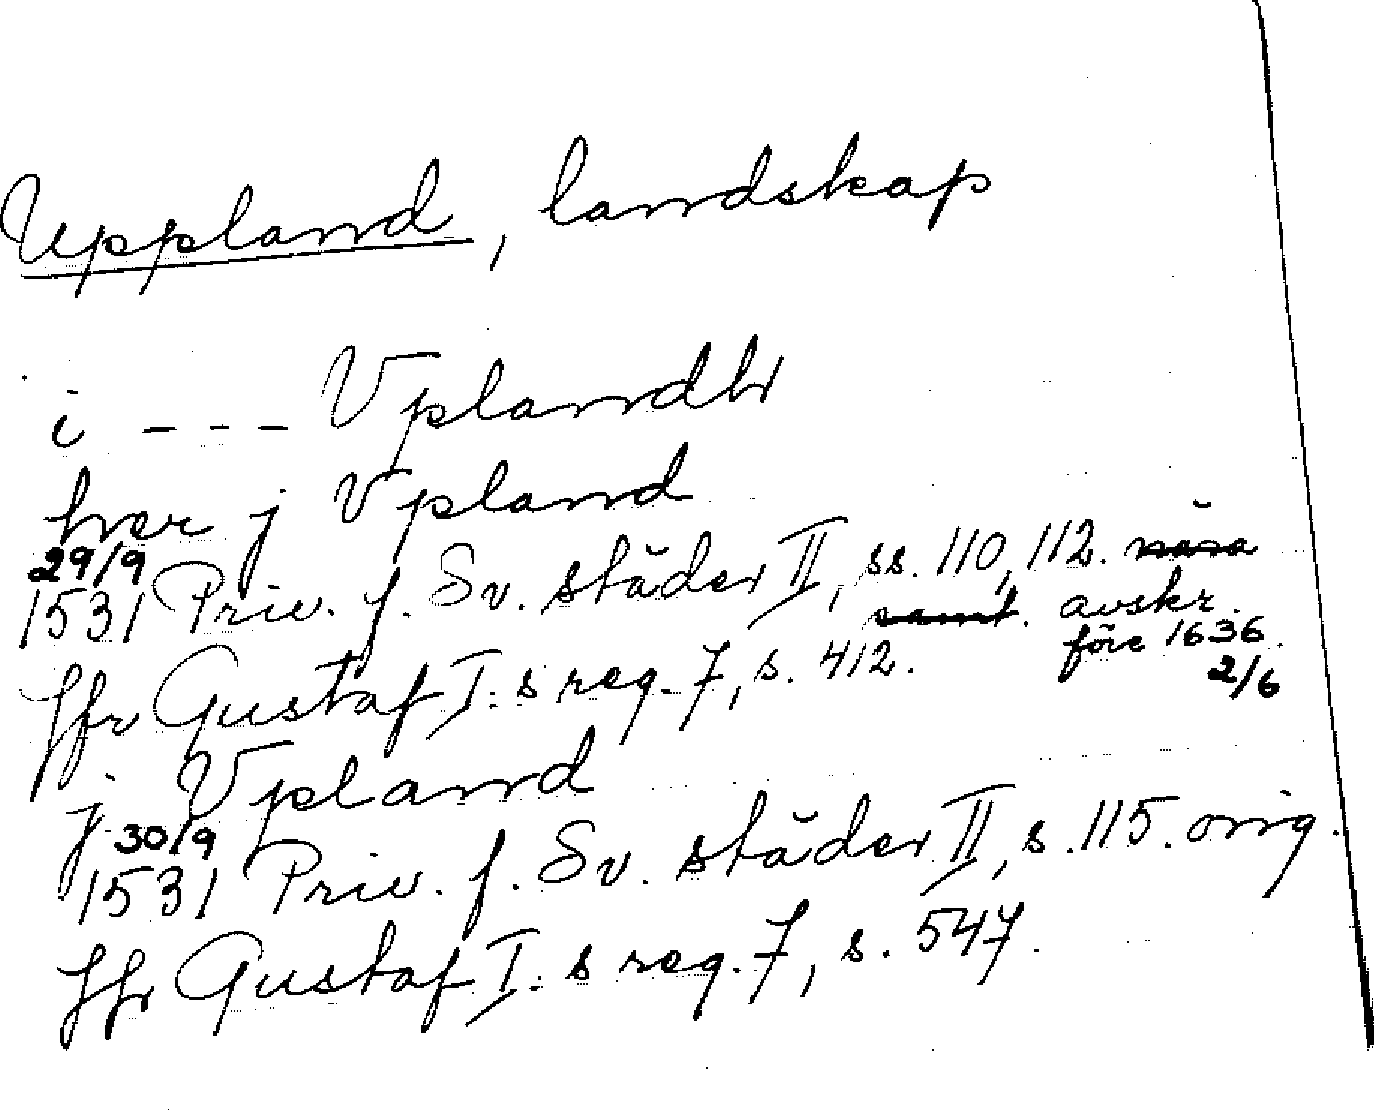 Uppland, landskap
i - - - Vplandh
hwer j Vpland
29/9
1531 Priv. f. Sv. städer II, ss. 110, 112.
samt. avskr.
före 1636.
2/6
Jfr Gustaf I:s reg. 7, s. 412.
j Vpland
30/9
1531 Priv. f. Sv. städer II, s. 115. orig.
Jfr Gustaf I:s reg. 7, s. 547.